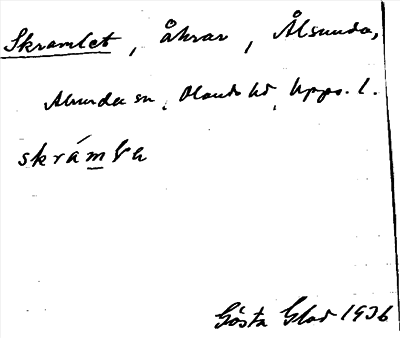 Skramlet, åkrar, Ålsunda,
Alunda sn, Olands hd, Upps. l.
skrám
Gösta Glad 1936